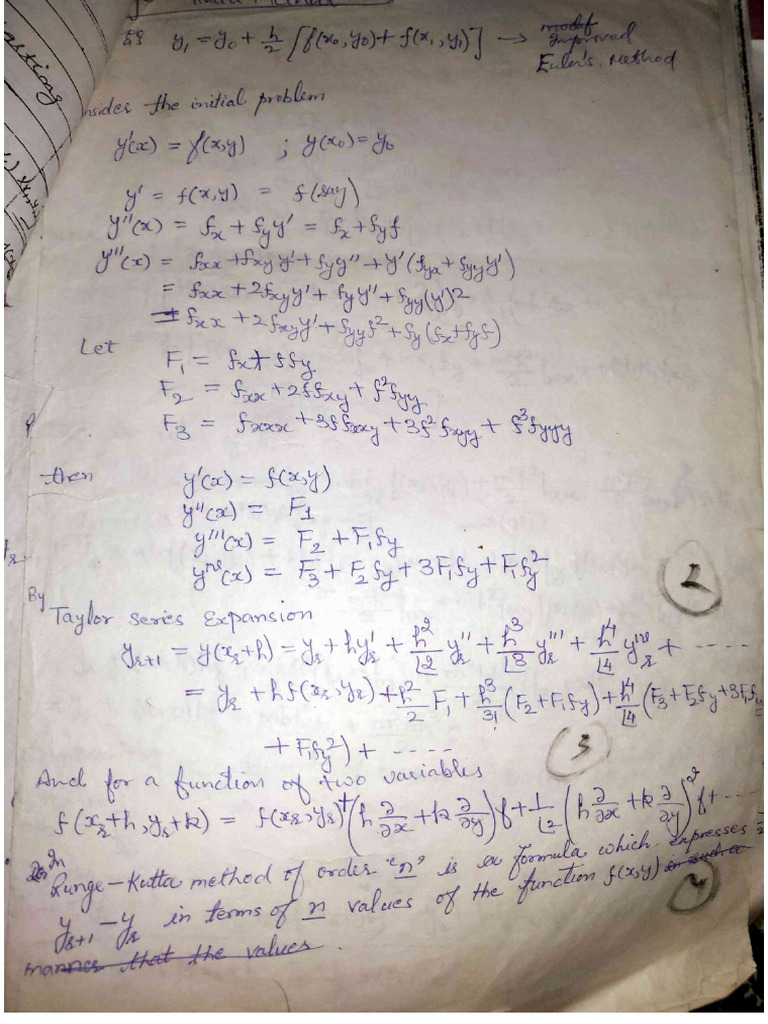 y₁ = y₀ + h/2 [f(x₀, y₀) + f(x₁, y₁)] → Improved
Euler's Method
nsider the initial problem
y'(x) = f(x,y) ; y(x₀) = y₀
y' = f(x,y) = f (say)
y''(x) = fₓ + f_y y' = fₓ + f_y f
y'''(x) = fₓₓ + fₓy y' + f_y y'' + y'(f_yx + f_yy y')
= fₓₓ + 2fₓy y' + f_y y'' + f_yy (y')2
= fₓₓ + 2fₓy y' + f_yy f² + f_y (fₓ + f_y f)
Let
F₁ = fₓ + f f_y
F₂ = fₓₓ + 2f fₓy + f² f_yy
F₃ = fₓₓₓ + 3f fₓₓy + 3f² fₓyy + f³ f_yyy
then y'(x) = f(x,y)
y''(x) = F₁
y'''(x) = F₂ + F₁f_y
y^iv(x) = F₃ + F₂f_y + 3F₁f_y + F₁f_y²
2
By Taylor series Expansion
y_r+1 = y(x_r+h) = y_r + hy'_r + h²/⌊2 y''_r + h³/⌊3 y'''_r + h⁴/⌊4 y^iv_r + - - - - -
= y_r + h f(x_r, y_r) + h²/2 F₁ + h³/3! (F₂ + F₁f_y) + h⁴/⌊4 (F₃ + F₂f_y + 3F₁f_y
+ F₁f_y²) + - - - -
3
And for a function of two variables
f(x_r+h, y_r+k) = f(x_r, y_r) + (h ∂/∂x + k ∂/∂y) f + 1/⌊2 (h ∂/∂x + k ∂/∂y)² f + - - -
4
Runge-Kutta method of order "n" is a formula which expresses
y_r+1 - y_r in terms of n values of the function f(x,y) in such a
manner that the values.